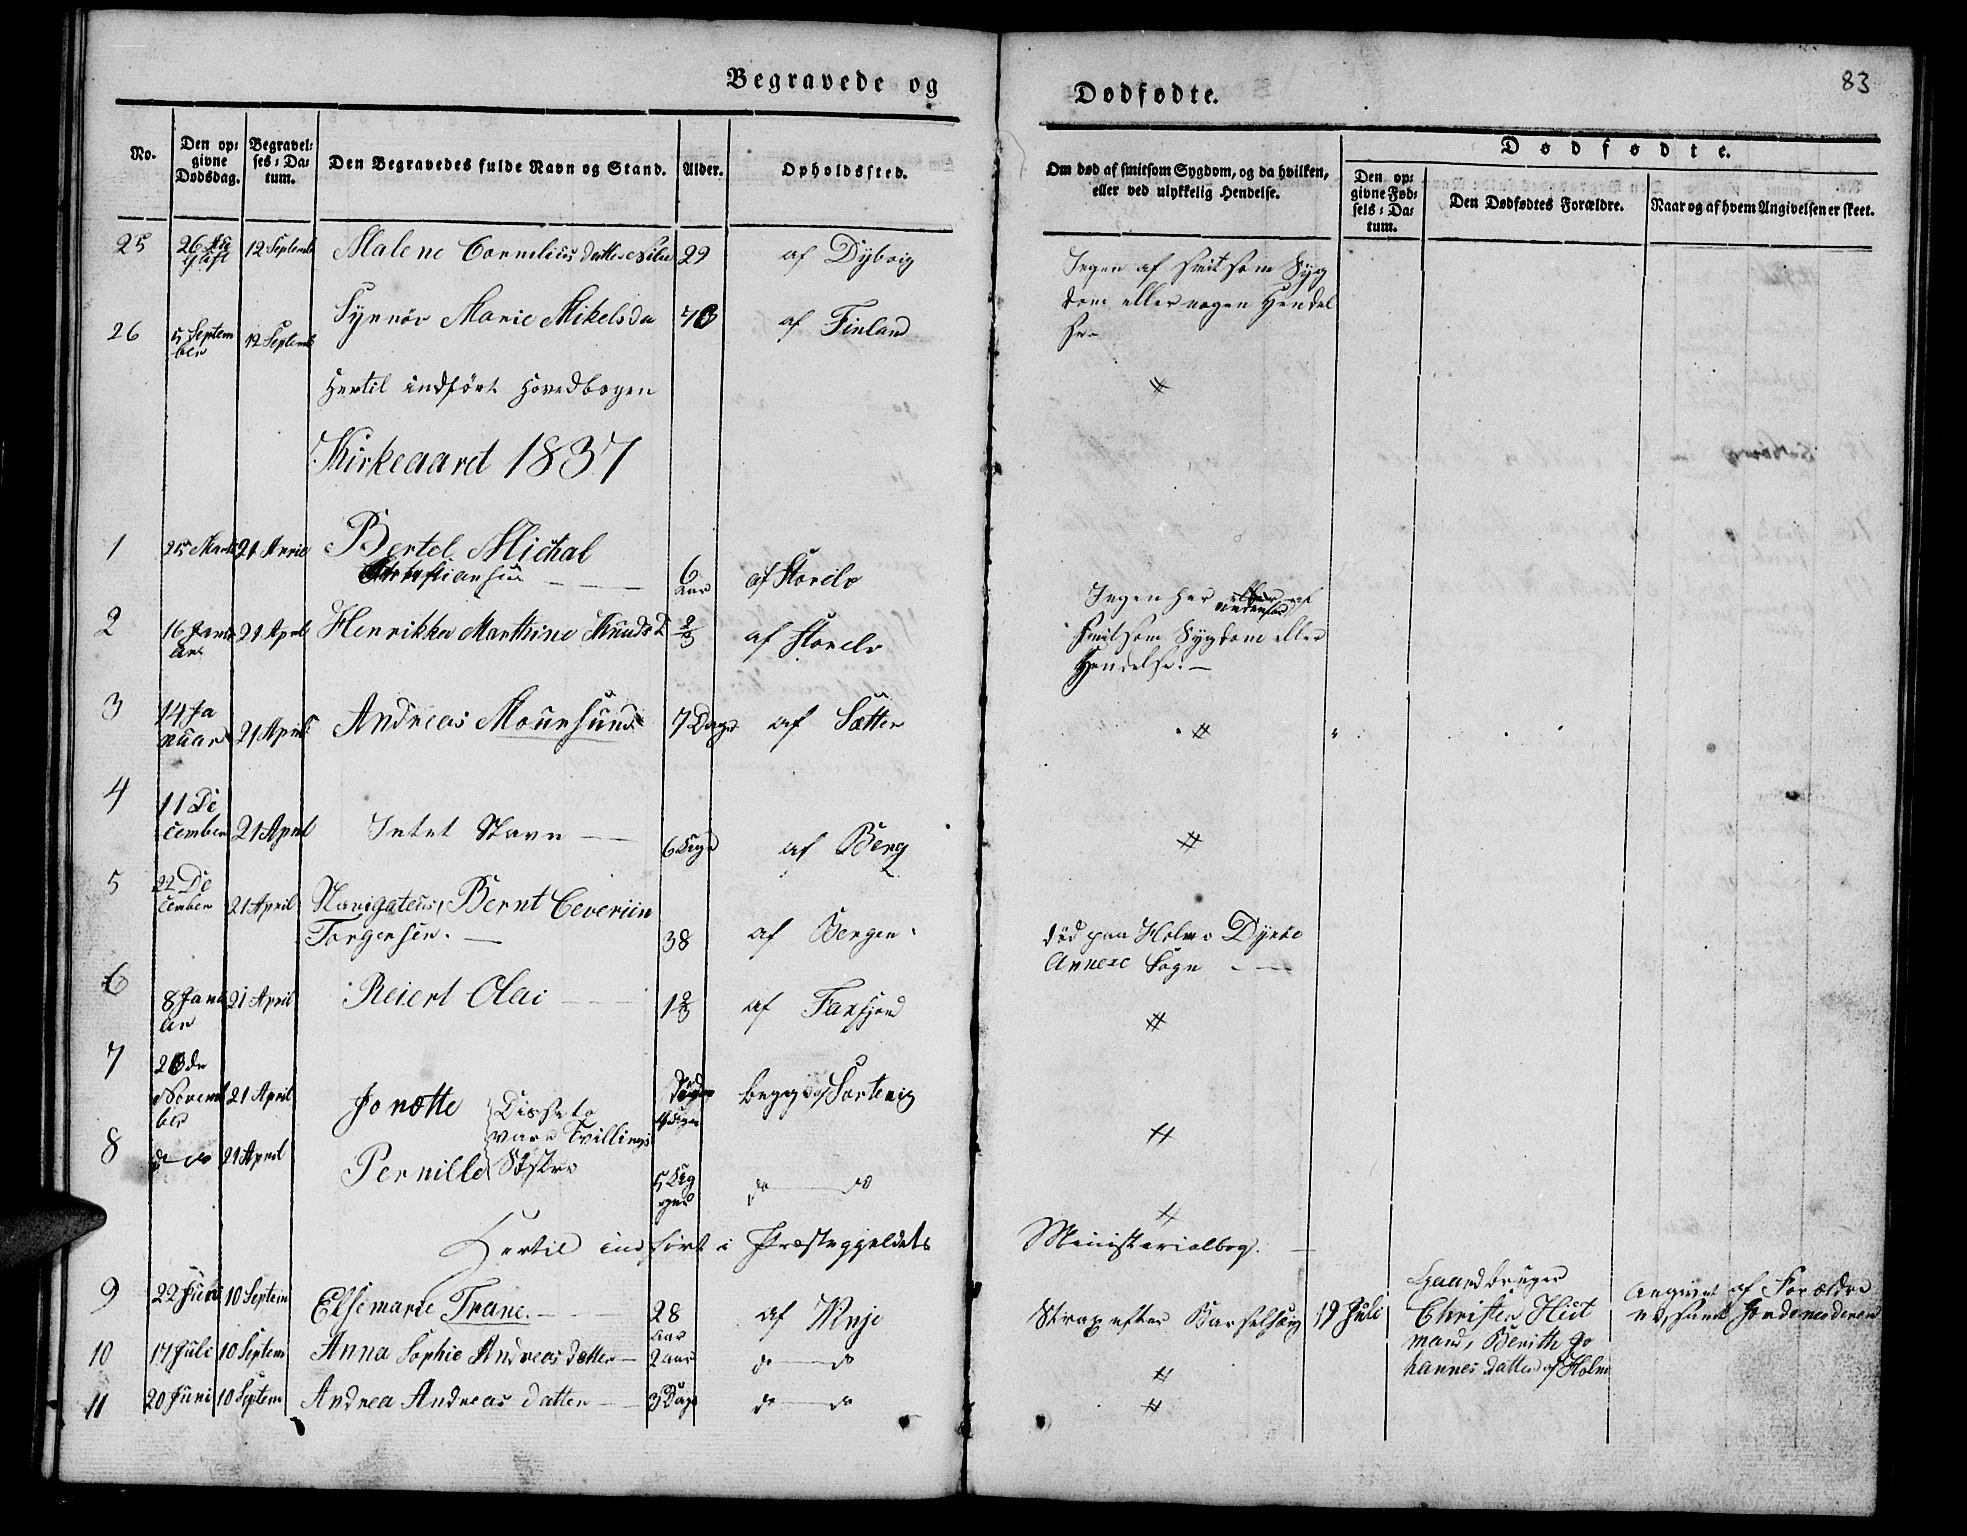 Begravede og
Dødfødte.
83
No.
Den op-
givne
Dødsdag.
Begravel-
ses-Da-
tum.
Den Begravedes fulde Navn og Stand.
Alder.
Opholdssted.
Om død af smitsom Sygdom, og da hvilken,
eller ved ulykkelig Hendelse.
Dødfødte.
Den op-
givne Fød-
sels-Da-
tum.
Den Dødfødtes Forældre.
Naar og af hvem Angivelsen er skeet.
25 26 Au
gust 12 Septemb Malene Cornelius datter 29 af Dybvig
Ingen af smitsom Syg
dom eller nogen Hendel
se
26 5 Septem
ber 12 Septemb Synnøv Marie Mikelsda 70 af Finland
#
Hertil indført Hovedbogen
Kirkeaaret 1837
1 25 Marts 21 April Bertel Michal
Christiansen 6
Aar af Storelv
2 16 Janu
ar 21 April Henrikka Marthine Knuds D 2/3 af Storelv
Ingen her af
smitsom Sygdom eller
Hendelse.
3 14 Ja
nuar 21 April Andreas Moursund 7 Dage af Sætter
#
4 11 De
cember 21 April Intet Navn 6 Dage af Berg
#
5 22 De
cember 21 April Navigateur, Bernt Ceveriin
Torgersen. 38 af Bergen
død paa Holm Dyrø
Annexe Sogn
6 8 Janu
ar 21 April Reiert Olai 1 2/3 af Taxfjord
#
7 20de
Novem
ber 21 April Jonette
Disse to
vare Tvillings
Søstre
Begge af Sortevig
#
8 do do 21 April Pernille 5 Da
ger do do
#
Hertil indført i Præstegjeldets
Ministerialbog.
9 22 Juni 10 Septem Elsemarie Trane. 28
Aar af Vinje
Strax efter Barselseng 19 Juli
Huusbruger
Christen Hist
mand, Berith Jo
hannes datter af Holm
Angivet af Forældre
ne, samt Jordemoderen
10 17 Juli 10 Septem Anna Sophie Andreas datter 2 Aar do do
#
11 20 Juni 10 Septem Andrea Andreas datter 3 Dage do do
#